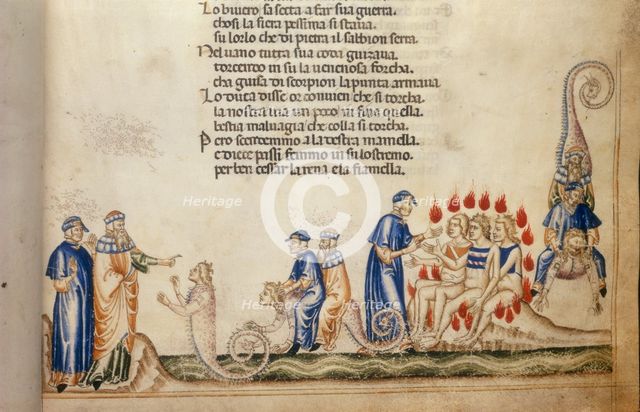 Lo bivero sa secta a far sua guerra.
chosi la fiera pessima si stava.
su lorlo che di pietra il sabbion serra.
Nel vano tutta sua coda guizava.
torcendo in su la venenosa forcha.
cha guisa di scorpion la punta armava
Lo duca disse or convien che si torcha.
la nostra via un poco in fino a quella.
bestia malvagia che colla si torcha.
Pero scendemmo a la destra mamella.
e diece passi femmo in su lo stremo.
per ben cessar la rena e la fiamella.
Heritage
Heritage
Heritage
Heritage
Heritage
Heritage